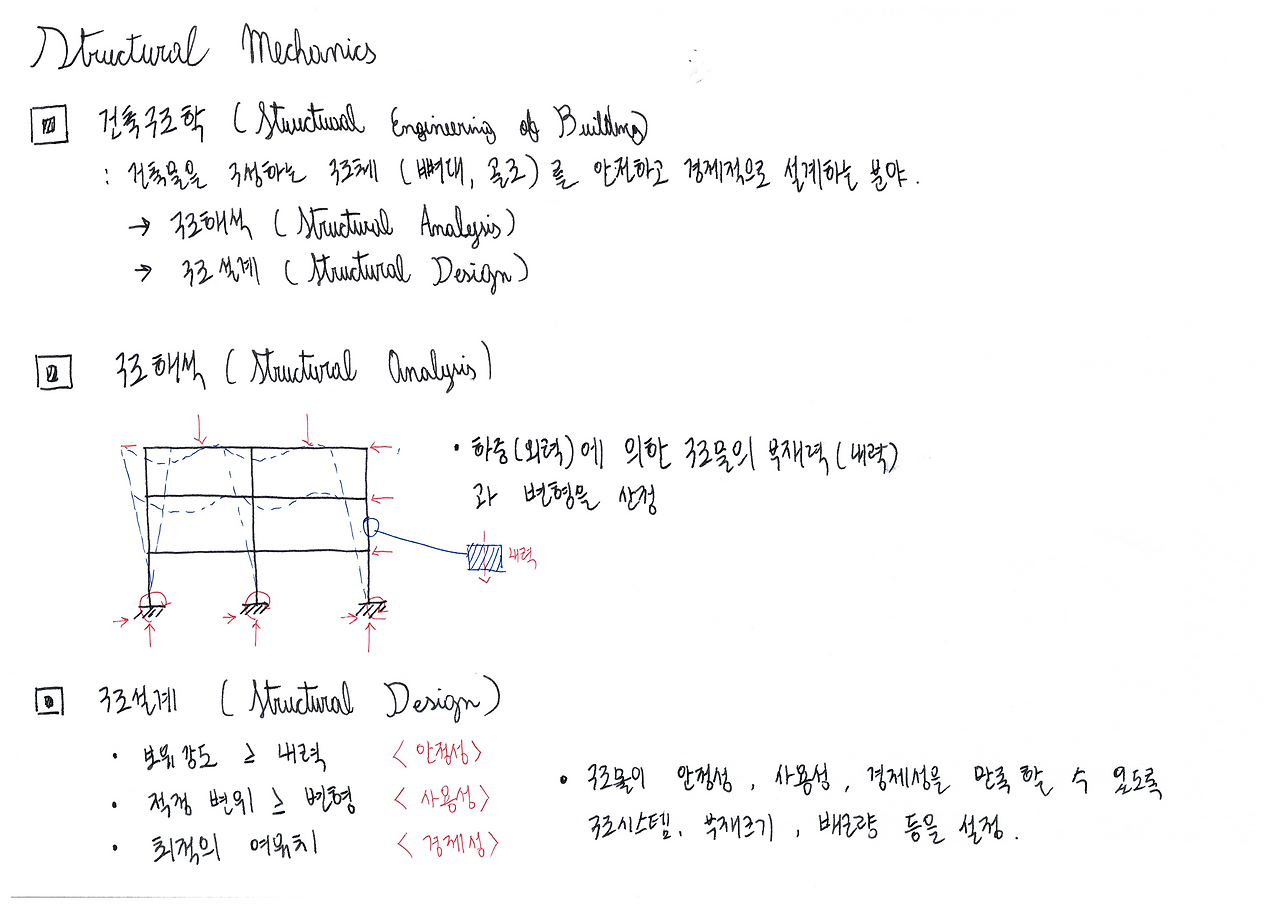 Structural Mechanics
건축구조학 (Structural Engineering of Building)
: 건축물을 구성하는 구조체 (뼈대, 골조)를 안전하고 경제적으로 설계하는 분야.
→ 구조해석 (Structural Analysis)
→ 구조설계 (Structural Design)
구조해석 (Structural Analysis)
• 하중(외력)에 의한 구조물의 부재력(내력)
과 변형을 산정
내력
구조설계 (Structural Design)
• 보유강도 ≥ 내력 <안정성>
• 적정 변위 ≥ 변형 <사용성>
• 최적의 여유치 <경제성>
• 구조물이 안정성, 사용성, 경제성을 만족 할 수 있도록
구조시스템, 부재크기, 배근량 등을 설정.